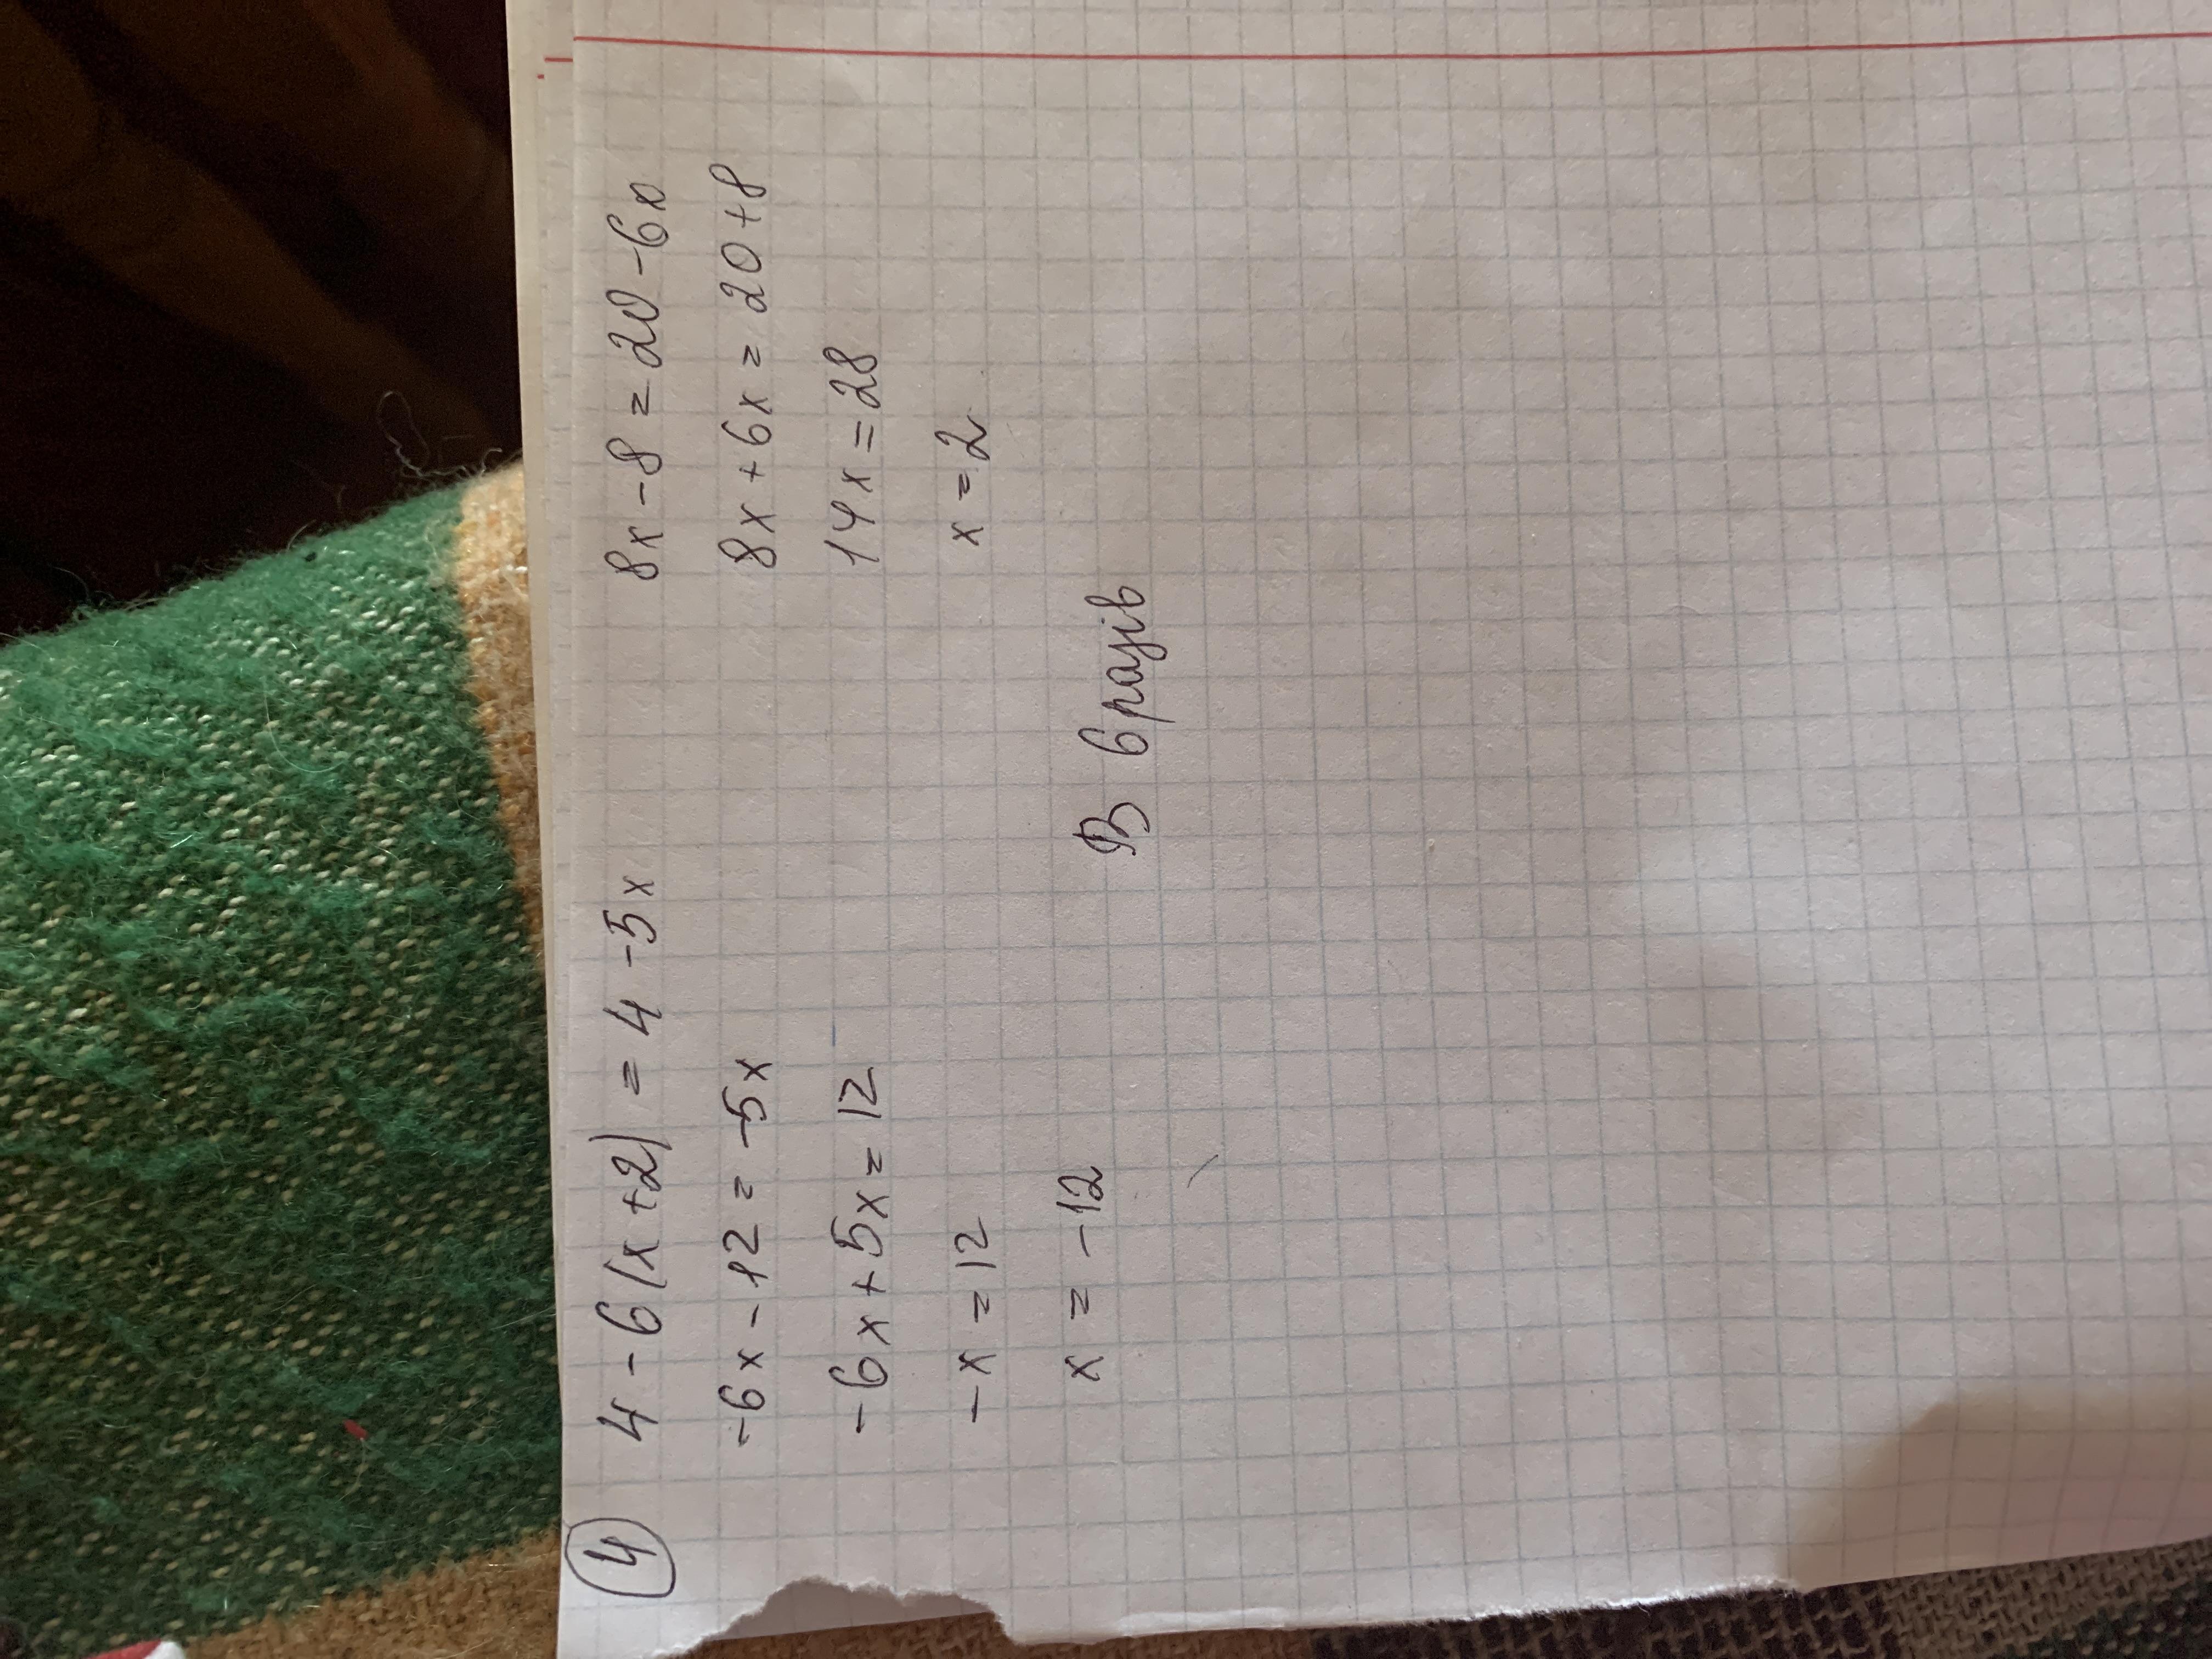 4
4 - 6(x + 2) = 4 - 5x
-6x - 12 = -5x
-6x + 5x = 12
-x = 12
x = -12
8x - 8 = 20 - 6x
8x + 6x = 20 + 8
14x = 28
x = 2
В 6 разів